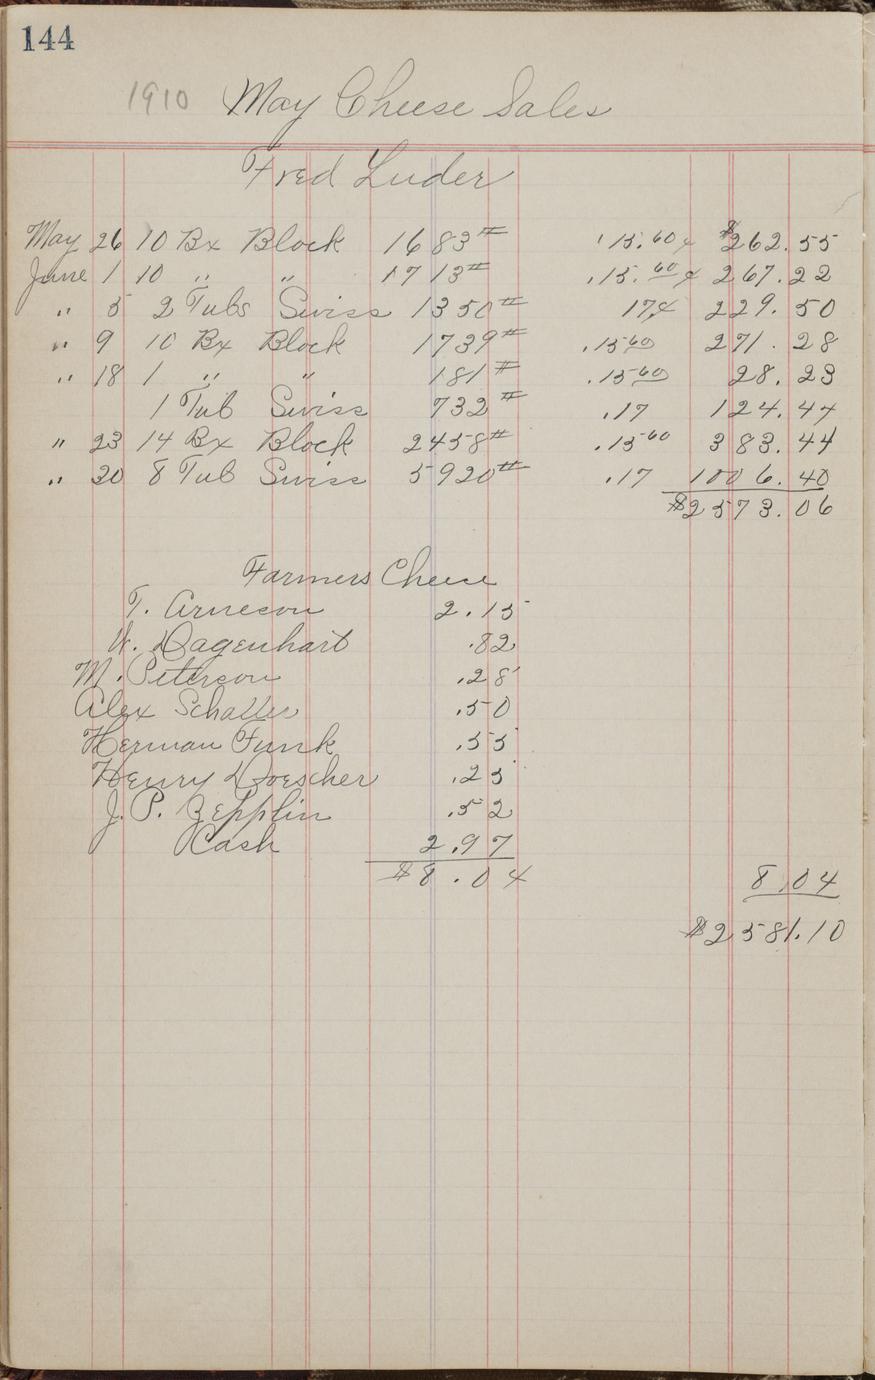 144
1910 May Cheese Sales
Fred Luder
May 26 10 Bx Block 1683# .15.60¢ $262.55
June 1 10 " " 1713# .15.60¢ 267.22
" 5 2 Tubs Swiss 1350# 17¢ 229.50
" 9 10 Bx Block 1739# .1560 271.28
" 18 1 " " 181# .1560 28.23
1 Tub Swiss 732# .17 124.44
" 23 14 Bx Block 2458# .1560 383.44
" 30 8 Tub Swiss 5920# .17 1006.40
$2573.06
Farmers Cheese
T. Arneson 2.15
W. Dagenhart .82
M. Peterson .28
Alex Schaller .50
Herman Funk .55
Henry Doescher .25
J. P. Zepplin .52
Cash 2.97
$8.04 8.04
$2581.10